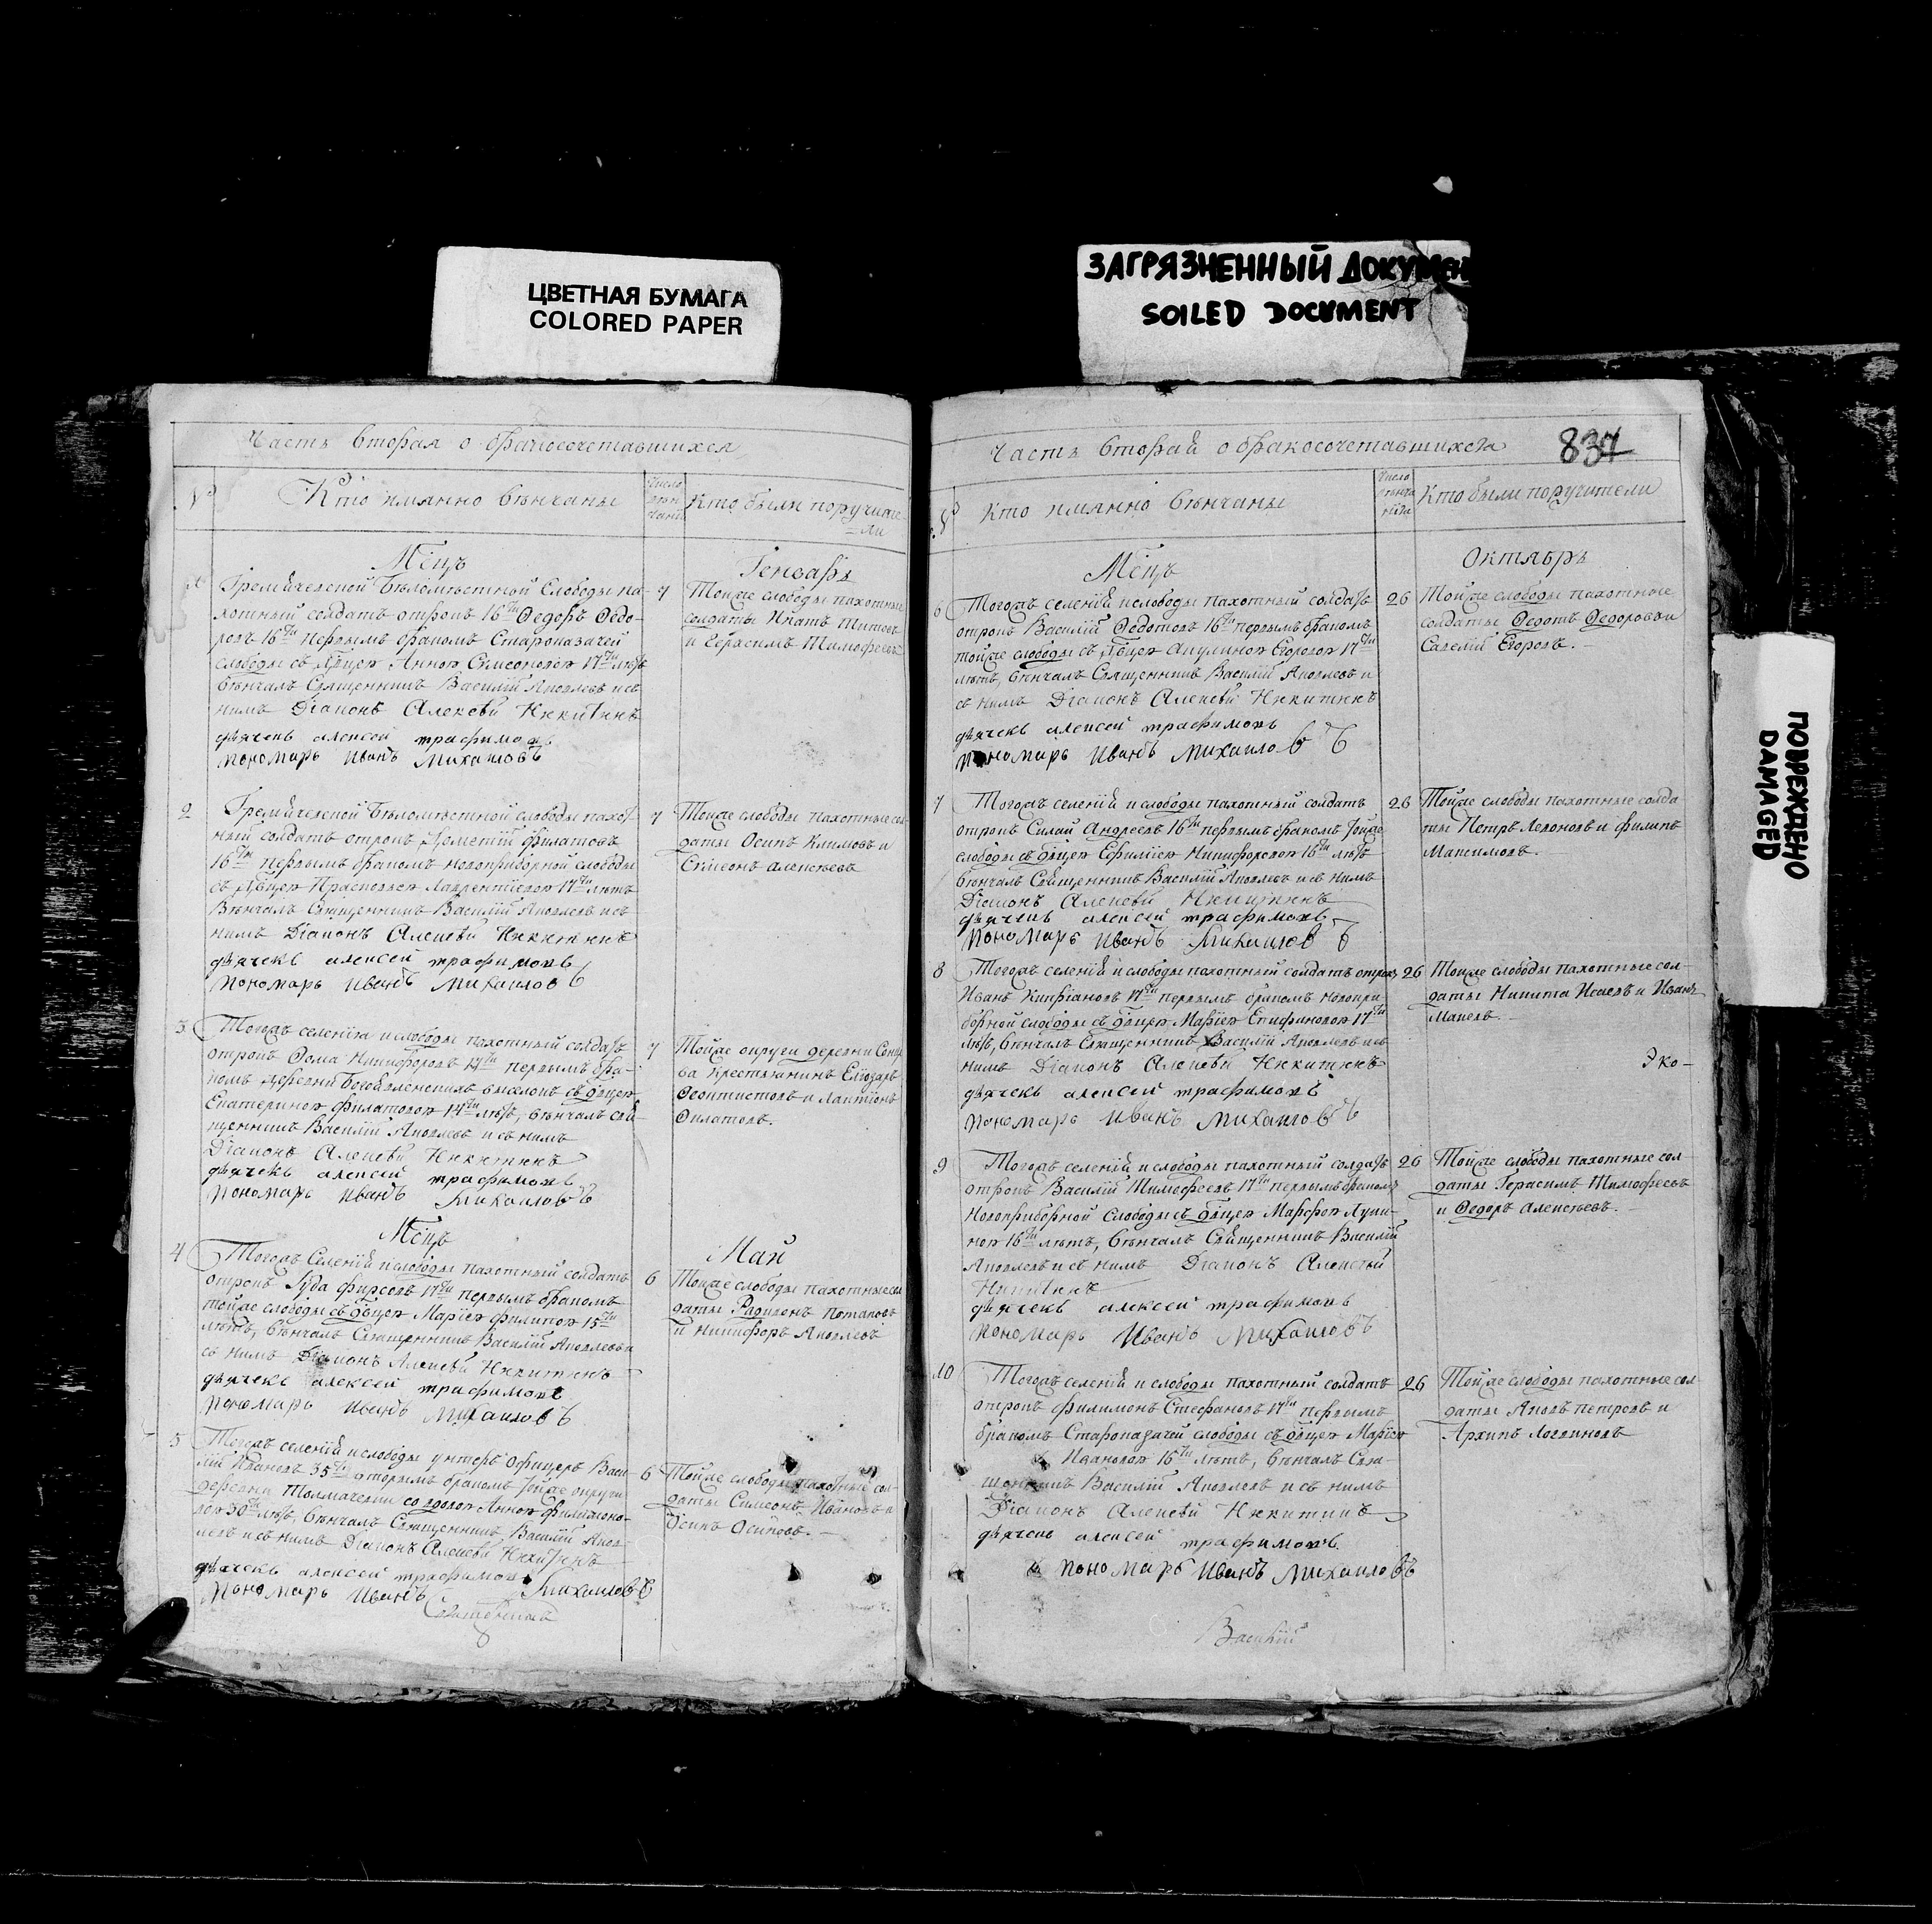 ЦВЕТНАЯ БУМАГА
COLORED PAPER
ЗАГРЯЗНЕННЫЙ ДОКУМЕН
SOILED DOCUMENT
ПОВРЕЖДЕНО
DAMAGED
Часть вторая о бракосочетавшихся
№
Кто имянно венчаны
Число венчания
Кто были поручите-
ли
Мѣцъ
Генварь
Гремяческой Бѣломѣстной Слободы па-
хотный солдатъ отрокъ 16ти Ѳедоръ Ѳедо-
ровъ 16ти первымъ бракомъ Староказачей
слободы съ дѣвцею Анною Симеоновою 17ти лѣтъ
Вѣнчалъ Священникъ Василій Яковлевъ и съ
нимъ Діаконъ Алексѣй Никитинъ
дьячекъ алексей трафимовъ
пономарь Иванъ Михаиловъ
7
Тойже слободы пахотные
солдаты Игнатъ Титовъ
и Герасимъ Тимофеевъ
2
Гремяческой Бѣломѣстной слободы пахот-
ный солдатъ отрокъ Дементій Филатовъ
16ти первымъ бракомъ новоприборной слободы
съ дѣвцею Прасковьею Лаврентіевою 17ти лѣтъ
Вѣнчалъ Священникъ Василій Яковлевъ и съ
нимъ Діаконъ Алексѣй Никитинъ
дьячекъ алексей трафимовъ
Пономарь Иванъ Михаиловъ
7
Тойже слободы пахотные сол-
даты Осипъ Климовъ и
Симеонъ Алексѣевъ
3
Тогожъ селенія и слободы пахотный солдатъ
отрокъ Ѳома Никифоровъ 17ти первымъ бра-
комъ деревни Богоявленскихъ выселокъ съ дѣвцею
Екатериною Филатовою 17ти лѣтъ, вѣнчалъ Свя-
щенникъ Василій Яковлевъ и съ нимъ
Діаконъ Алексѣй Никитинъ
дьячекъ алексей трафимовъ
Пономарь Иванъ Михаиловъ
7
Тойже округи деревни
крестьянинъ Елизаръ
Ѳеоктистовъ и
Филатовъ.
Мѣцъ
Май
4
Тогожъ Селенія и слободы пахотный солдатъ
отрокъ Іуда Фирсовъ 17ти первымъ бракомъ
тойже слободы съ дѣвцею Маріею Филиповою 15ти
лѣтъ, вѣнчалъ Священникъ Василій Яковлевъ и
съ нимъ Діаконъ Алексѣй Никитинъ
дьячекъ алексей трафимовъ
Пономарь Иванъ Михаиловъ
6
Тойже слободы пахотные сол
даты Радіонъ Потаповъ
и Никифоръ Яковлевъ
5
Тогожъ селенія и слободы унтеръ Офицеръ Васи-
лій Ивановъ 35ти вторымъ бракомъ тойже округи
деревни Толмачевки со вдовою Анною Филимоно-
вою 30ти лѣтъ, вѣнчалъ Священникъ Василій Яков-
левъ и съ нимъ Діаконъ Алексѣй Никитинъ
дьячекъ алексей трафимовъ
Пономарь Иванъ Михаиловъ
6
Тойже слободы пахотный сол-
даты Симеонъ Ивановъ и
Осипъ Осиповъ.
Часть вторая о бракосочетавшихся
837
№
Кто имянно вѣнчаны
Число вѣнчанія
Кто были поручители
Мѣцъ
Октябрь
6
Тогожъ селенія и слободы пахотный солдатъ
отрокъ Василій Ѳедотовъ 16ти первымъ бракомъ
тойже слободы съ дѣвцею Акулиною Егоровою 17ти
лѣтъ, вѣнчалъ Священникъ Василій Яковлевъ и
съ нимъ Діаконъ Алексѣй Никитинъ
дьячекъ алексей трафимовъ
пономарь Иванъ Михаиловъ
26
Тойже слободы пахотные
солдаты Ѳедотъ Ѳедоровъ и
Савелій Егоровъ.
7
Тогожъ селенія и слободы пахотный солдатъ
отрокъ Силай Андреевъ 16ти первымъ бракомъ тойже
слободы съ дѣвцею Ефиміею Никифоровою 16ти лѣтъ
вѣнчалъ Священникъ Василій Яковлевъ и съ нимъ
Діаконъ Алексѣй Никитинъ
дьячекъ алексей трафимовъ
Пономарь Иванъ Михаиловъ
26
Тойже слободы пахотные солда
ты Петръ Леоновъ и Филипъ
Максимовъ.
8
Тогожъ селенія и слободы пахотный солдатъ отрокъ
Иванъ Кипріановъ 17ти первымъ бракомъ новопри
борной слободы съ дѣвцею Маріею Епифановою 17ти
лѣтъ, вѣнчалъ Священникъ Василій Яковлевъ и съ
нимъ Діаконъ Алексѣй Никитинъ
дьячекъ алексей трафимовъ
Пономарь Иванъ Михаиловъ
26
Тойже слободы пахотные сол-
даты Никита Исаевъ и Иванъ
Макеевъ.
Эко-
9
Тогожъ селенія и слободы пахотный солдатъ
отрокъ Василій Тимофеевъ 17ти первымъ бракомъ
Новоприборной Слободы съ дѣвцею Марфою Луки-
ною 16ти лѣтъ, вѣнчалъ Священникъ Василій
Яковлевъ и съ нимъ Діаконъ Алексѣй
Никитинъ
дьячекъ алексей трафимовъ
Пономарь Иванъ Михаиловъ
26
Тойже слободы пахотные сол-
даты Герасимъ Тимофеевъ
и Ѳедоръ Алексѣевъ.
10
Тогожъ селенія и слободы пахотный солдатъ
отрокъ Филимонъ Стефановъ 17ти первымъ
бракомъ Староказачей слободы съ дѣвцею Маріею
Ивановою 16ти лѣтъ, вѣнчалъ Свя-
щенникъ Василій Яковлевъ и съ нимъ
Діаконъ Алексѣй Никитинъ
дьячекъ алексей трафимовъ
пономарь Иванъ Михаиловъ
26
Тойже слободы пахотные сол-
даты Яковъ Петровъ и
Архипъ Логвиновъ
Василій